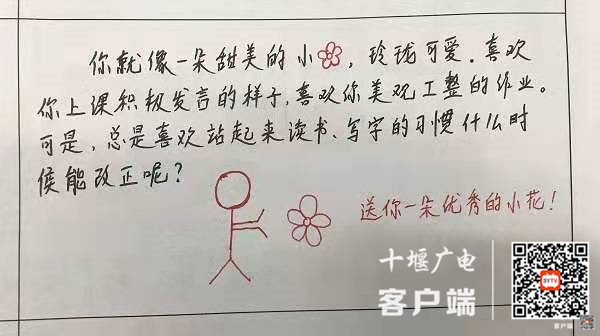 你就像一朵甜美的小，玲珑可爱．喜欢
你上课积极发言的样子，喜欢你美观工整的作业。
可是，总是喜欢站起来读书、写字的习惯什么时
侯能改正呢？
送你一朵优秀的小花！
十堰广电
客户端
SYTV